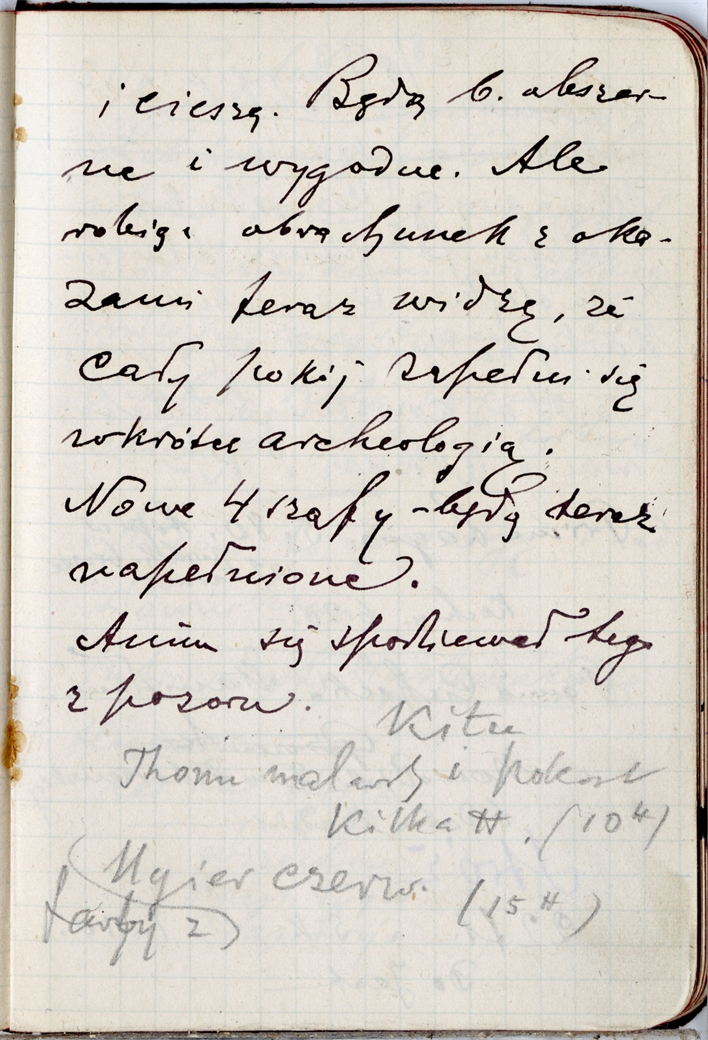 i cieszą. Będą b. obszer-
ne i wygodne. Ale
robiąc obrachunek z oka-
zami teraz widzę, że
cały pokój zapełni się
wkrótce archeologią.
Nowe 4 szafy będą teraz
napełnione.
Anim się spodziewał tego
z pozoru.
Kitu
i pokost
Kilka H. (10 H)
Ugier czerw. (15 H)
farby 2)